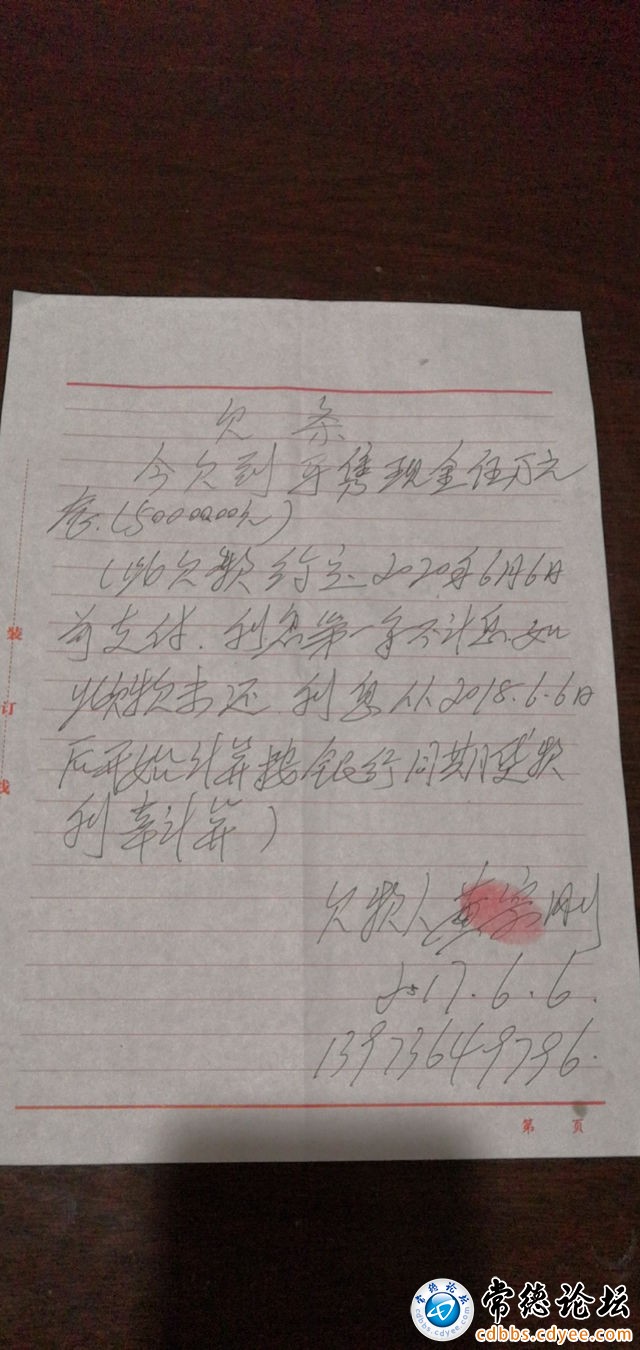 欠条
今欠到 现金伍万元
(50000.00元)
(此欠款约定 2020年6月6日
前支付.利息第一年不计息.如
欠款未还 利息从2018.6.6日
后开始计算按银行同期贷款
利率计算)
欠款人黄宗刚
2017.6.6.
13973649796.
装
订
线
第 页
常德论坛
cdbbs.cdyee.com